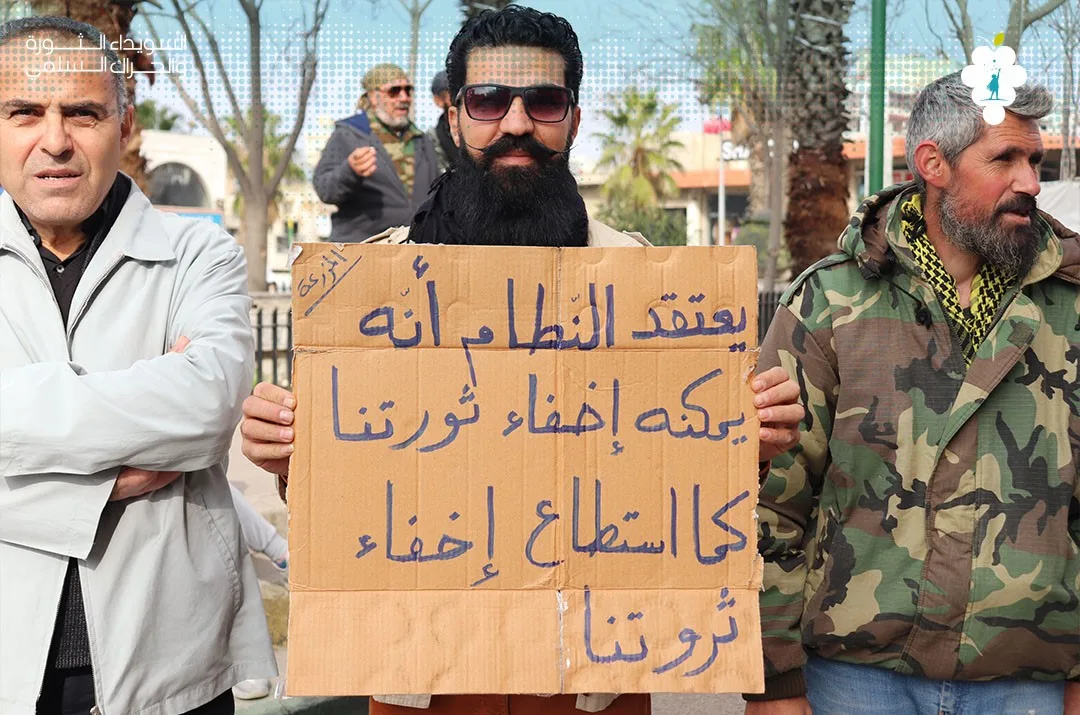 السويداء الثورة
والحراك السلمي
المزرعة
يعتقد النّظام أنّه
يمكنه إخفاء ثورتنا
كما استطاع إخفاء
ثروتنا